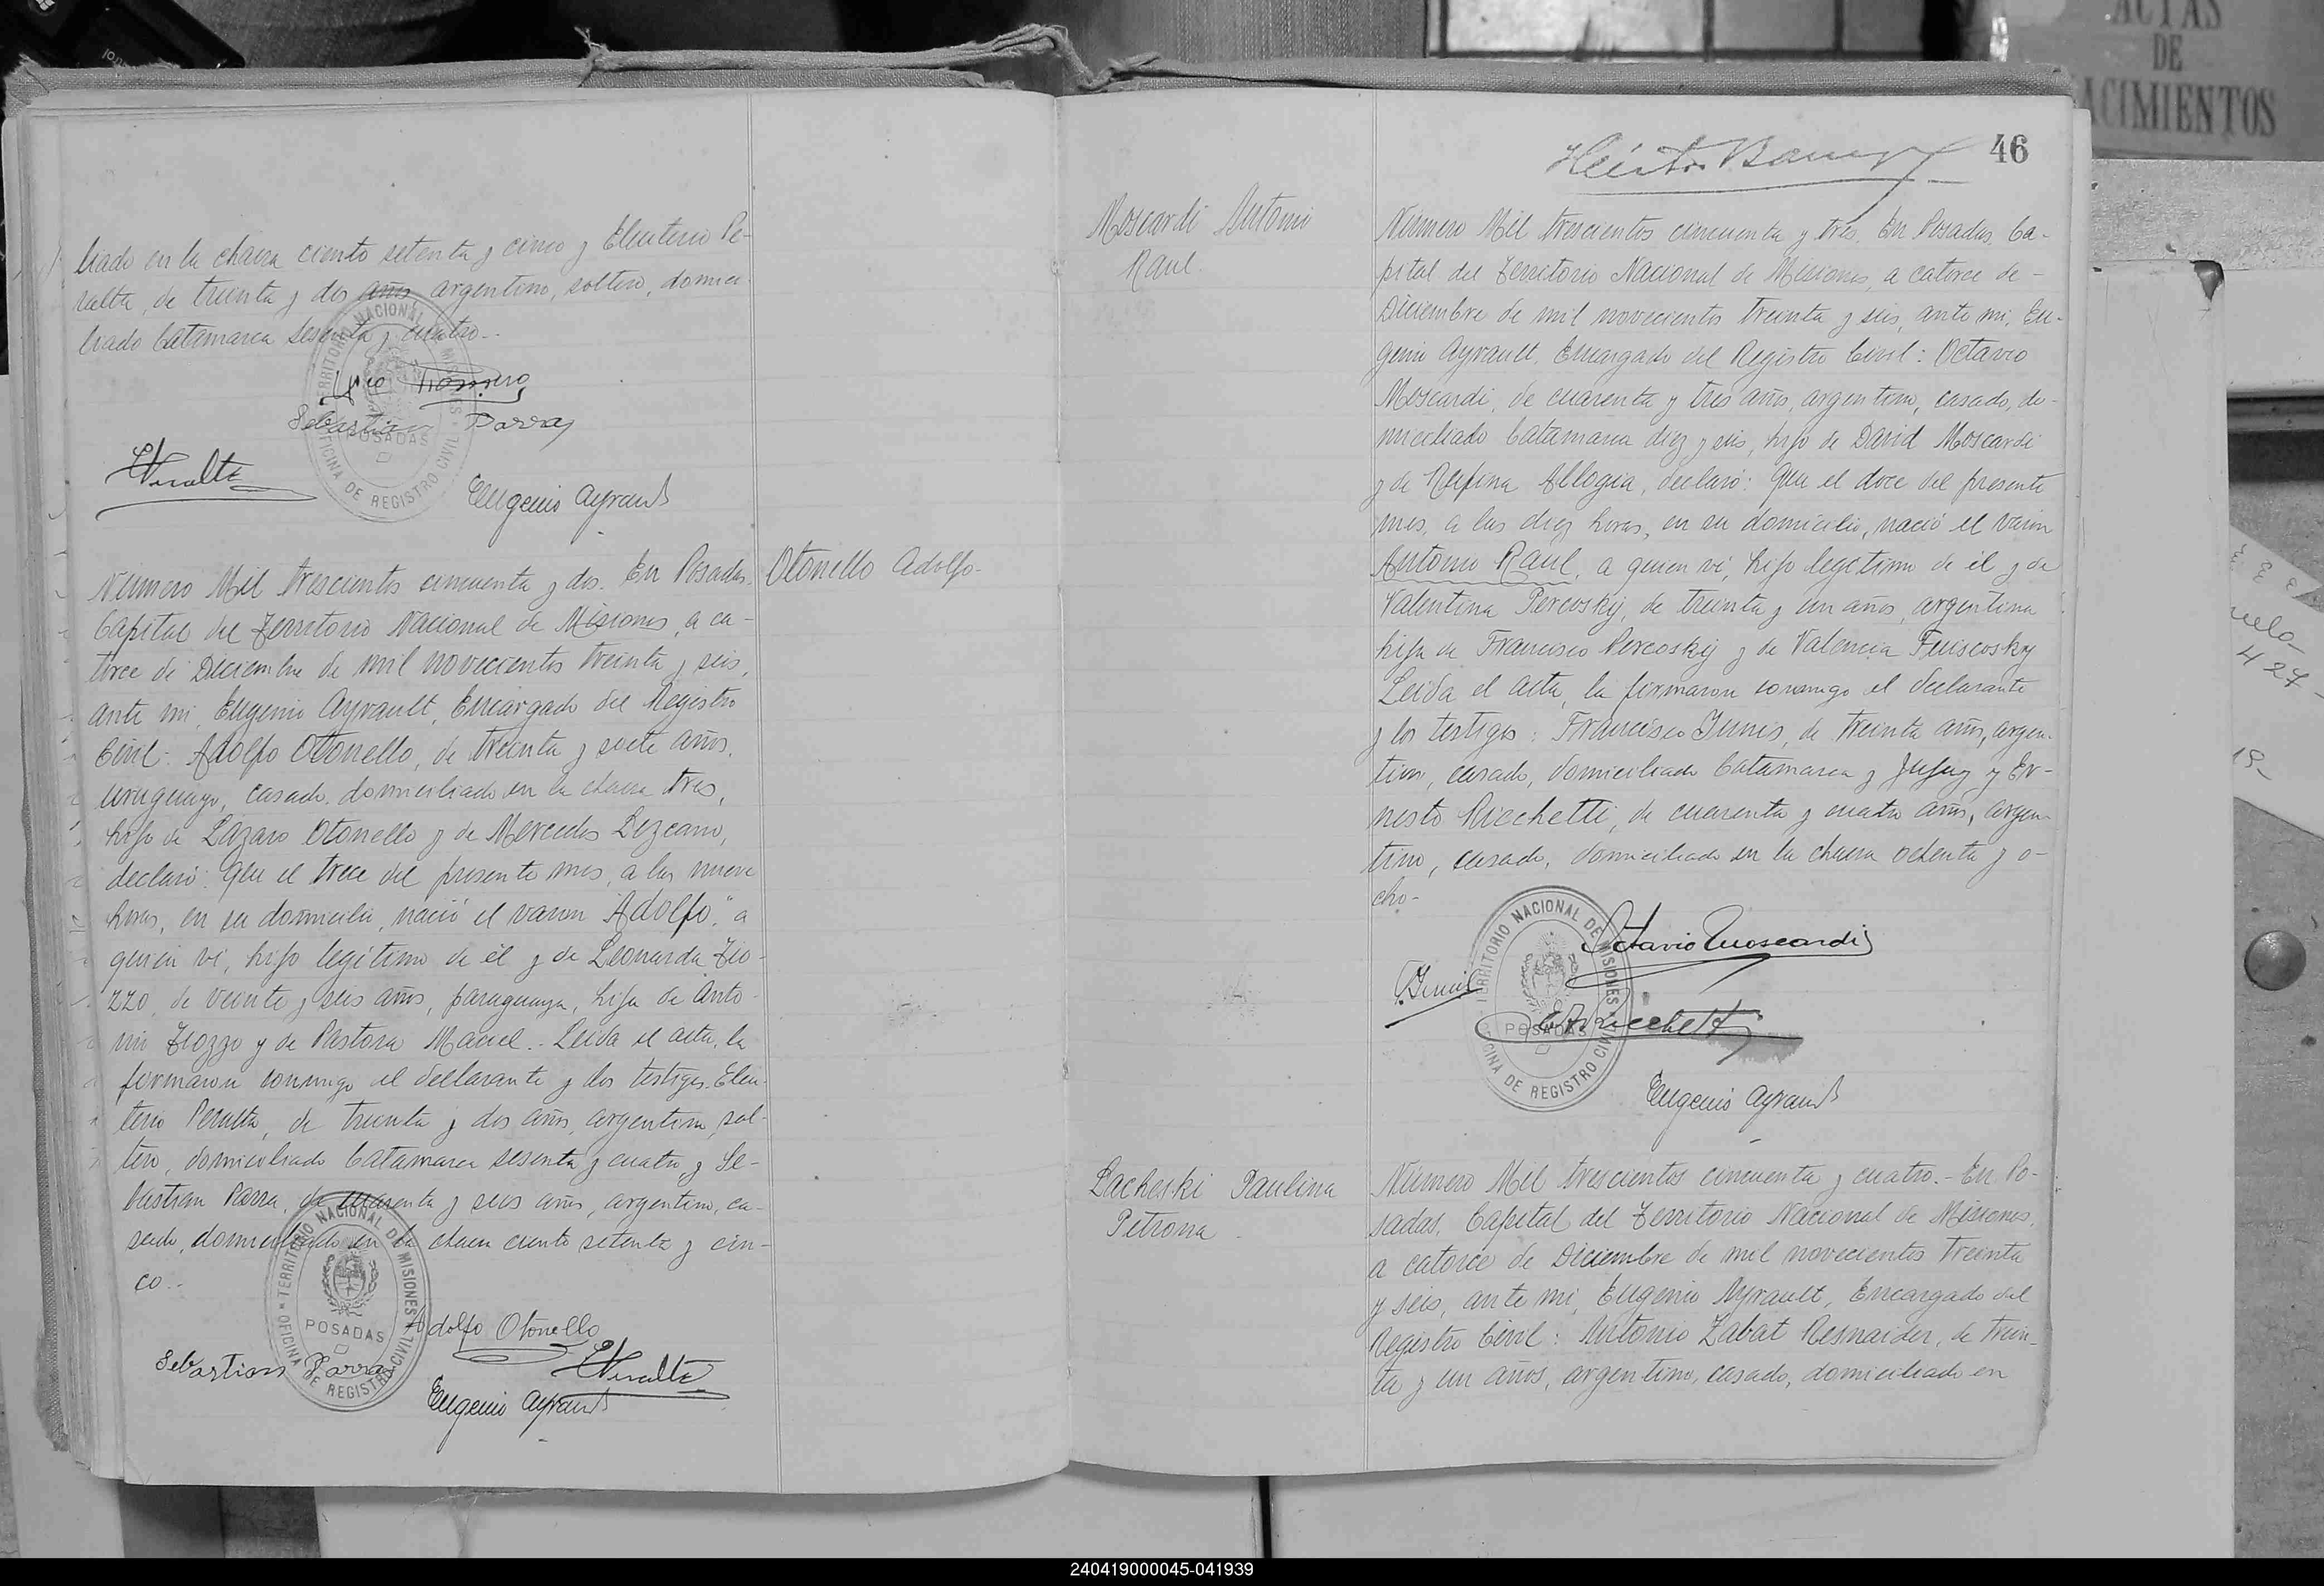 liado en la chacra ciento setenta y cinco y Eleuterio Pe-
ralta, de treinta y dos años argentino, soltero, domici-
liado Catamarca sesenta y cuatro.-
Romero
Sebastian Parra
EPeralta
Eugenio Ayrault
Número Mil trescientos cincuenta y dos. En Posadas,
Otonello Adolfo-
Capital del Territorio Nacional de Misiones, a ca-
torce de Diciembre de mil novecientos treinta y seis,
ante mi, Eugenio Ayrault, Encargado del Registro
Civil: Adolfo Otonello, de treinta y siete años,
uruguayo, casado, domiciliado en la chacra tres,
hijo de Lázaro Otonello y de Mercedes Lezcano,
declaró: Que el trece del presente mes, a las nueve
horas, en su domicilio, nació el varon "Adolfo" a
quien vi, hijo legítimo de él y de Leonarda Fio-
zzo, de veinte y seis años, paraguaya, hija de Anto-
nio Fiozzo y de Pastora Maciel.- Leida el acta, la
firmaron conmigo el declarante y los testigos: Eleu-
terio Peralta, de treinta y dos años, argentino, sol-
tero, domiciliado Catamarca sesenta y cuatro y Se-
bastian Parra, de cuarenta y seis años, argentino, ca-
sado, domiciliado en la chacra ciento setenta y cin-
co.-
TERRITORIO NACIONAL DE MISIONES
POSADAS
OFICINA DE REGISTRO CIVIL
Adolfo Otonello
Sebastian Parra
EPeralta
Eugenio Ayrault
46
Moscardi Antonio
Raul.
Número Mil trescientos cincuenta y tres. En Posadas, Ca-
pital del Territorio Nacional de Misiones, a catorce de-
Diciembre de mil novecientos treinta y seis, ante mi, Eu-
genio Ayrault, Encargado del Registro Civil: Octavio
Moscardi, de cuarenta y tres años, argentino, casado, do-
miciliado Catamarca diez y seis, hijo de David Moscardi
y de Rufina Allogia, declaró: Que el doce del presente
mes, a las diez horas, en su domicilio, nació el varon
Antonio Raul, a quien vi, hijo legítimo de él y de
Valentina Percosky, de treinta y un años, argentina
hija de Francisco Percosky y de Valencia
Leida el acta, la firmaron conmigo el declarante
y los testigos: Francisco Junis, de treinta años, argen-
tino, casado, domiciliado Catamarca y Jujuy y Er-
nesto Ricchetti, de cuarenta y cuatro años, argen-
tino, casado, domiciliado en la chacra ochenta y o-
cho-
Octavio Moscardi
TERRITORIO NACIONAL DE MISIONES
POSADAS
OFICINA DE REGISTRO CIVIL
Eugenio Ayrault
Lacheski Paulina
Petrona
Número Mil trescientos cincuenta y cuatro.- En Po-
sadas, Capital del Territorio Nacional de Misiones,
a catorce de Diciembre de mil novecientos treinta
y seis, ante mi, Eugenio Ayrault, Encargado del
Registro Civil: Antonio Zabat Resnaider, de trein-
ta y un años, argentino, casado, domiciliado en
ACTAS
DE
ACIMIENTOS
427
19-
240419000045-041939